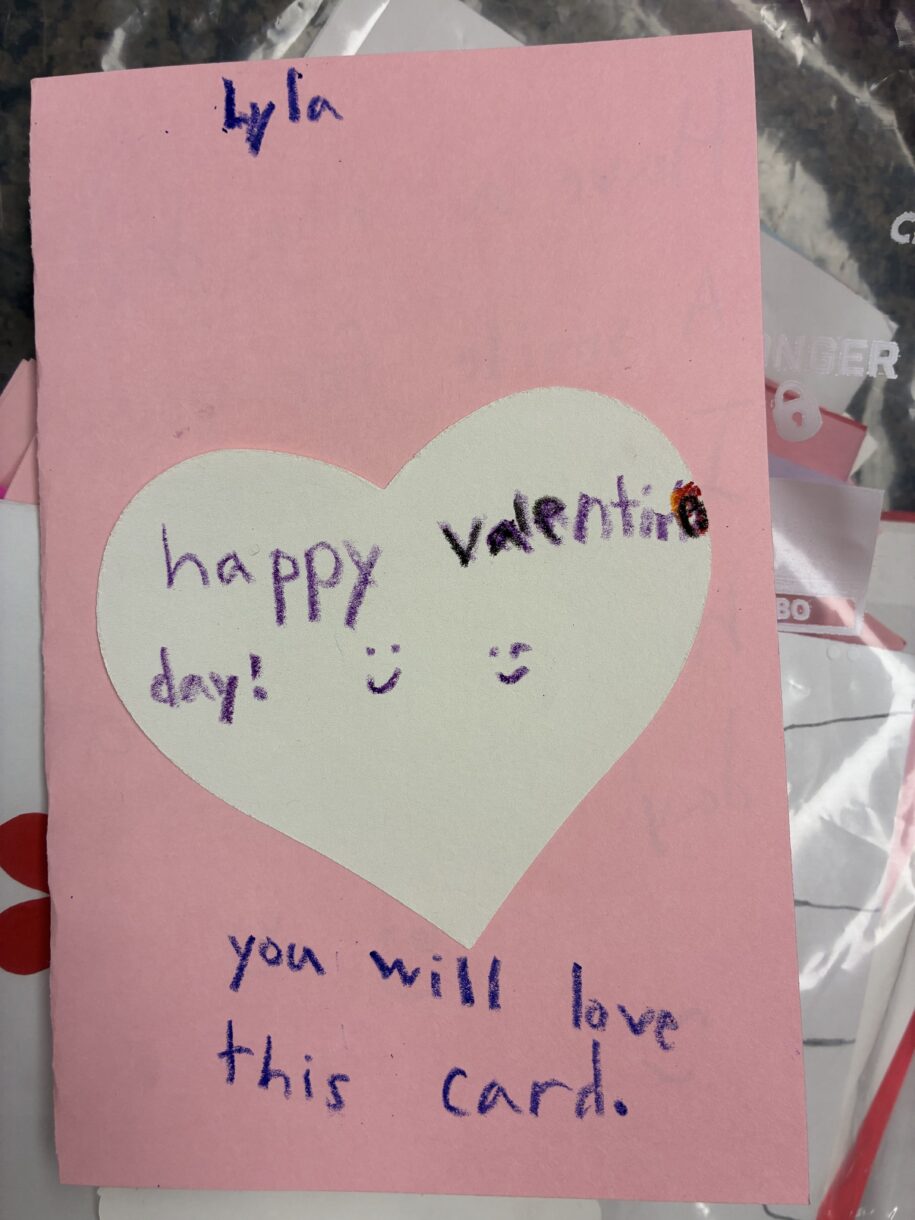 Lyla
happy valentine
day!
you will love
this card.
ONGER
BO